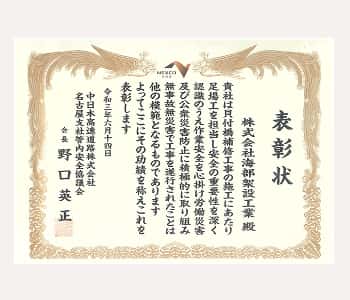 NEXCO
表彰状
株式会社海部架設工業 殿
貴社は貝付橋補修工事の施工にあたり
足場工を担当し安全の重要性を深く
認識のうえ作業安全を心掛け労働災害
及び公衆災害防止に積極的に取り組み
無事故無災害で工事を遂行されたことは
他の模範となるものであります
よってここにその功績を称えこれを
表彰します
令和三年六月十四日
中日本高速道路株式会社
名古屋支社管内安全協議会
会長 野口英正